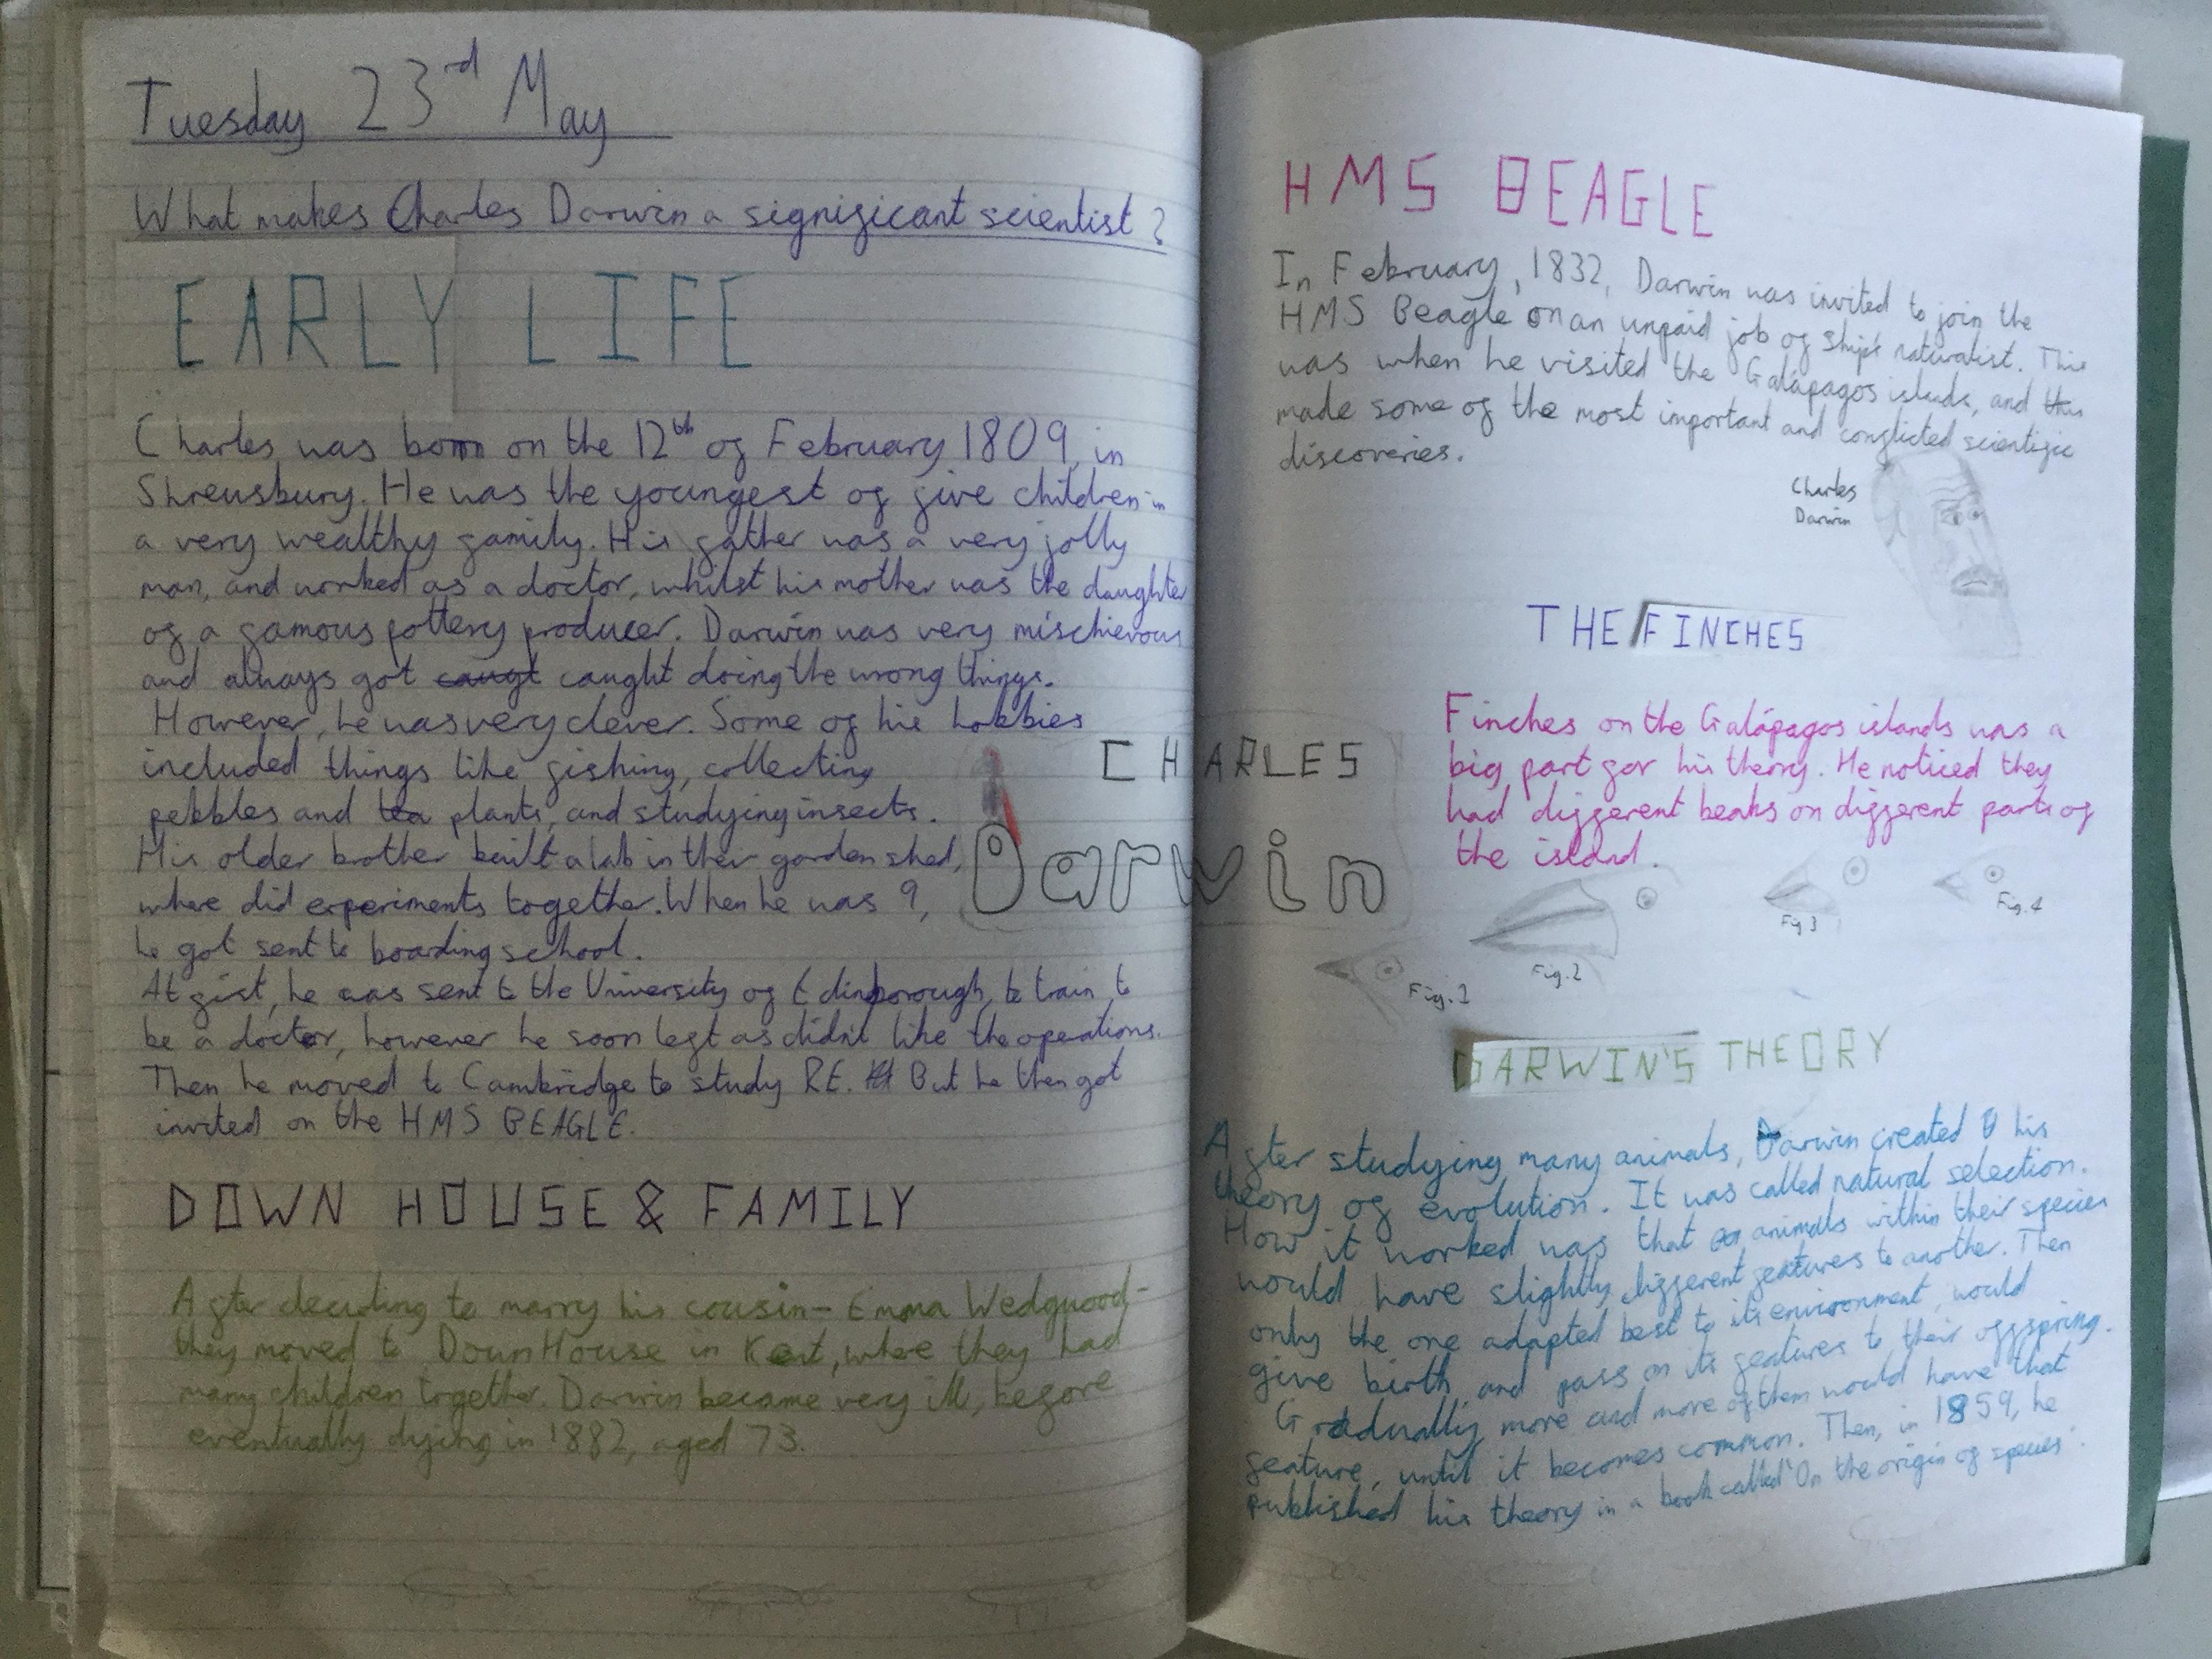 Tuesday 23rd May
What makes Charles Darwin a significant scientist?
EARLY LIFE
Charles was born on the 12th of February 1809, in
Shrewsbury. He was the youngest of five children in
a very wealthy family. His father was a very jolly
man, and worked as a doctor, whilst his mother was the daughter
of a famous pottery producer. Darwin was very mischievous
and always got caugt caught doing the wrong things.
However, he was very clever. Some of his hobbies
included things like fishing, collecting
pebbles and tea plants, and studying insects.
His older brother built a lab in ther garden shed,
where did experiments together. When he was 9,
he got sent to boarding school.
At fist, he was sent to the University of Edinborough, to train to
be a doctor, however he soon left as didn't like the operations.
Then he moved to Cambridge to study RE. But he then got
invited on the HMS BEAGLE.
DOWN HOUSE & FAMILY
After deciding to marry his cousin - Emma Wedgwood -
they moved to Down House in Kent, where they had
many children together. Darwin became very ill, before
eventually dying in 1882, aged 73.
CHARLES
Darwin
HMS BEAGLE
In February, 1832, Darwin was invited to join the
HMS Beagle on an unpaid job of ship's naturalist. This
was when he visited the Galápagos islands, and this
made some of the most important and conflicted scientific
discoveries.
Charles
Darwin
THE FINCHES
Finches on the Galápagos islands was a
big part for his theory. He noticed they
had different beaks on different parts of
the island.
Fig.1
Fig.2
Fig 3
Fig.4
DARWIN'S THEORY
After studying many animals, Darwin created his
theory of evolution. It was called natural selection.
How it worked was that animals within their species
would have slightly different features to another. Then
only the one adapted best to its environment, would
give birth, and pass on its features to their offspring.
Gradually, more and more of them would have that
feature, until it becomes common. Then, in 1859, he
published his theory in a book called 'On the origin of species'.